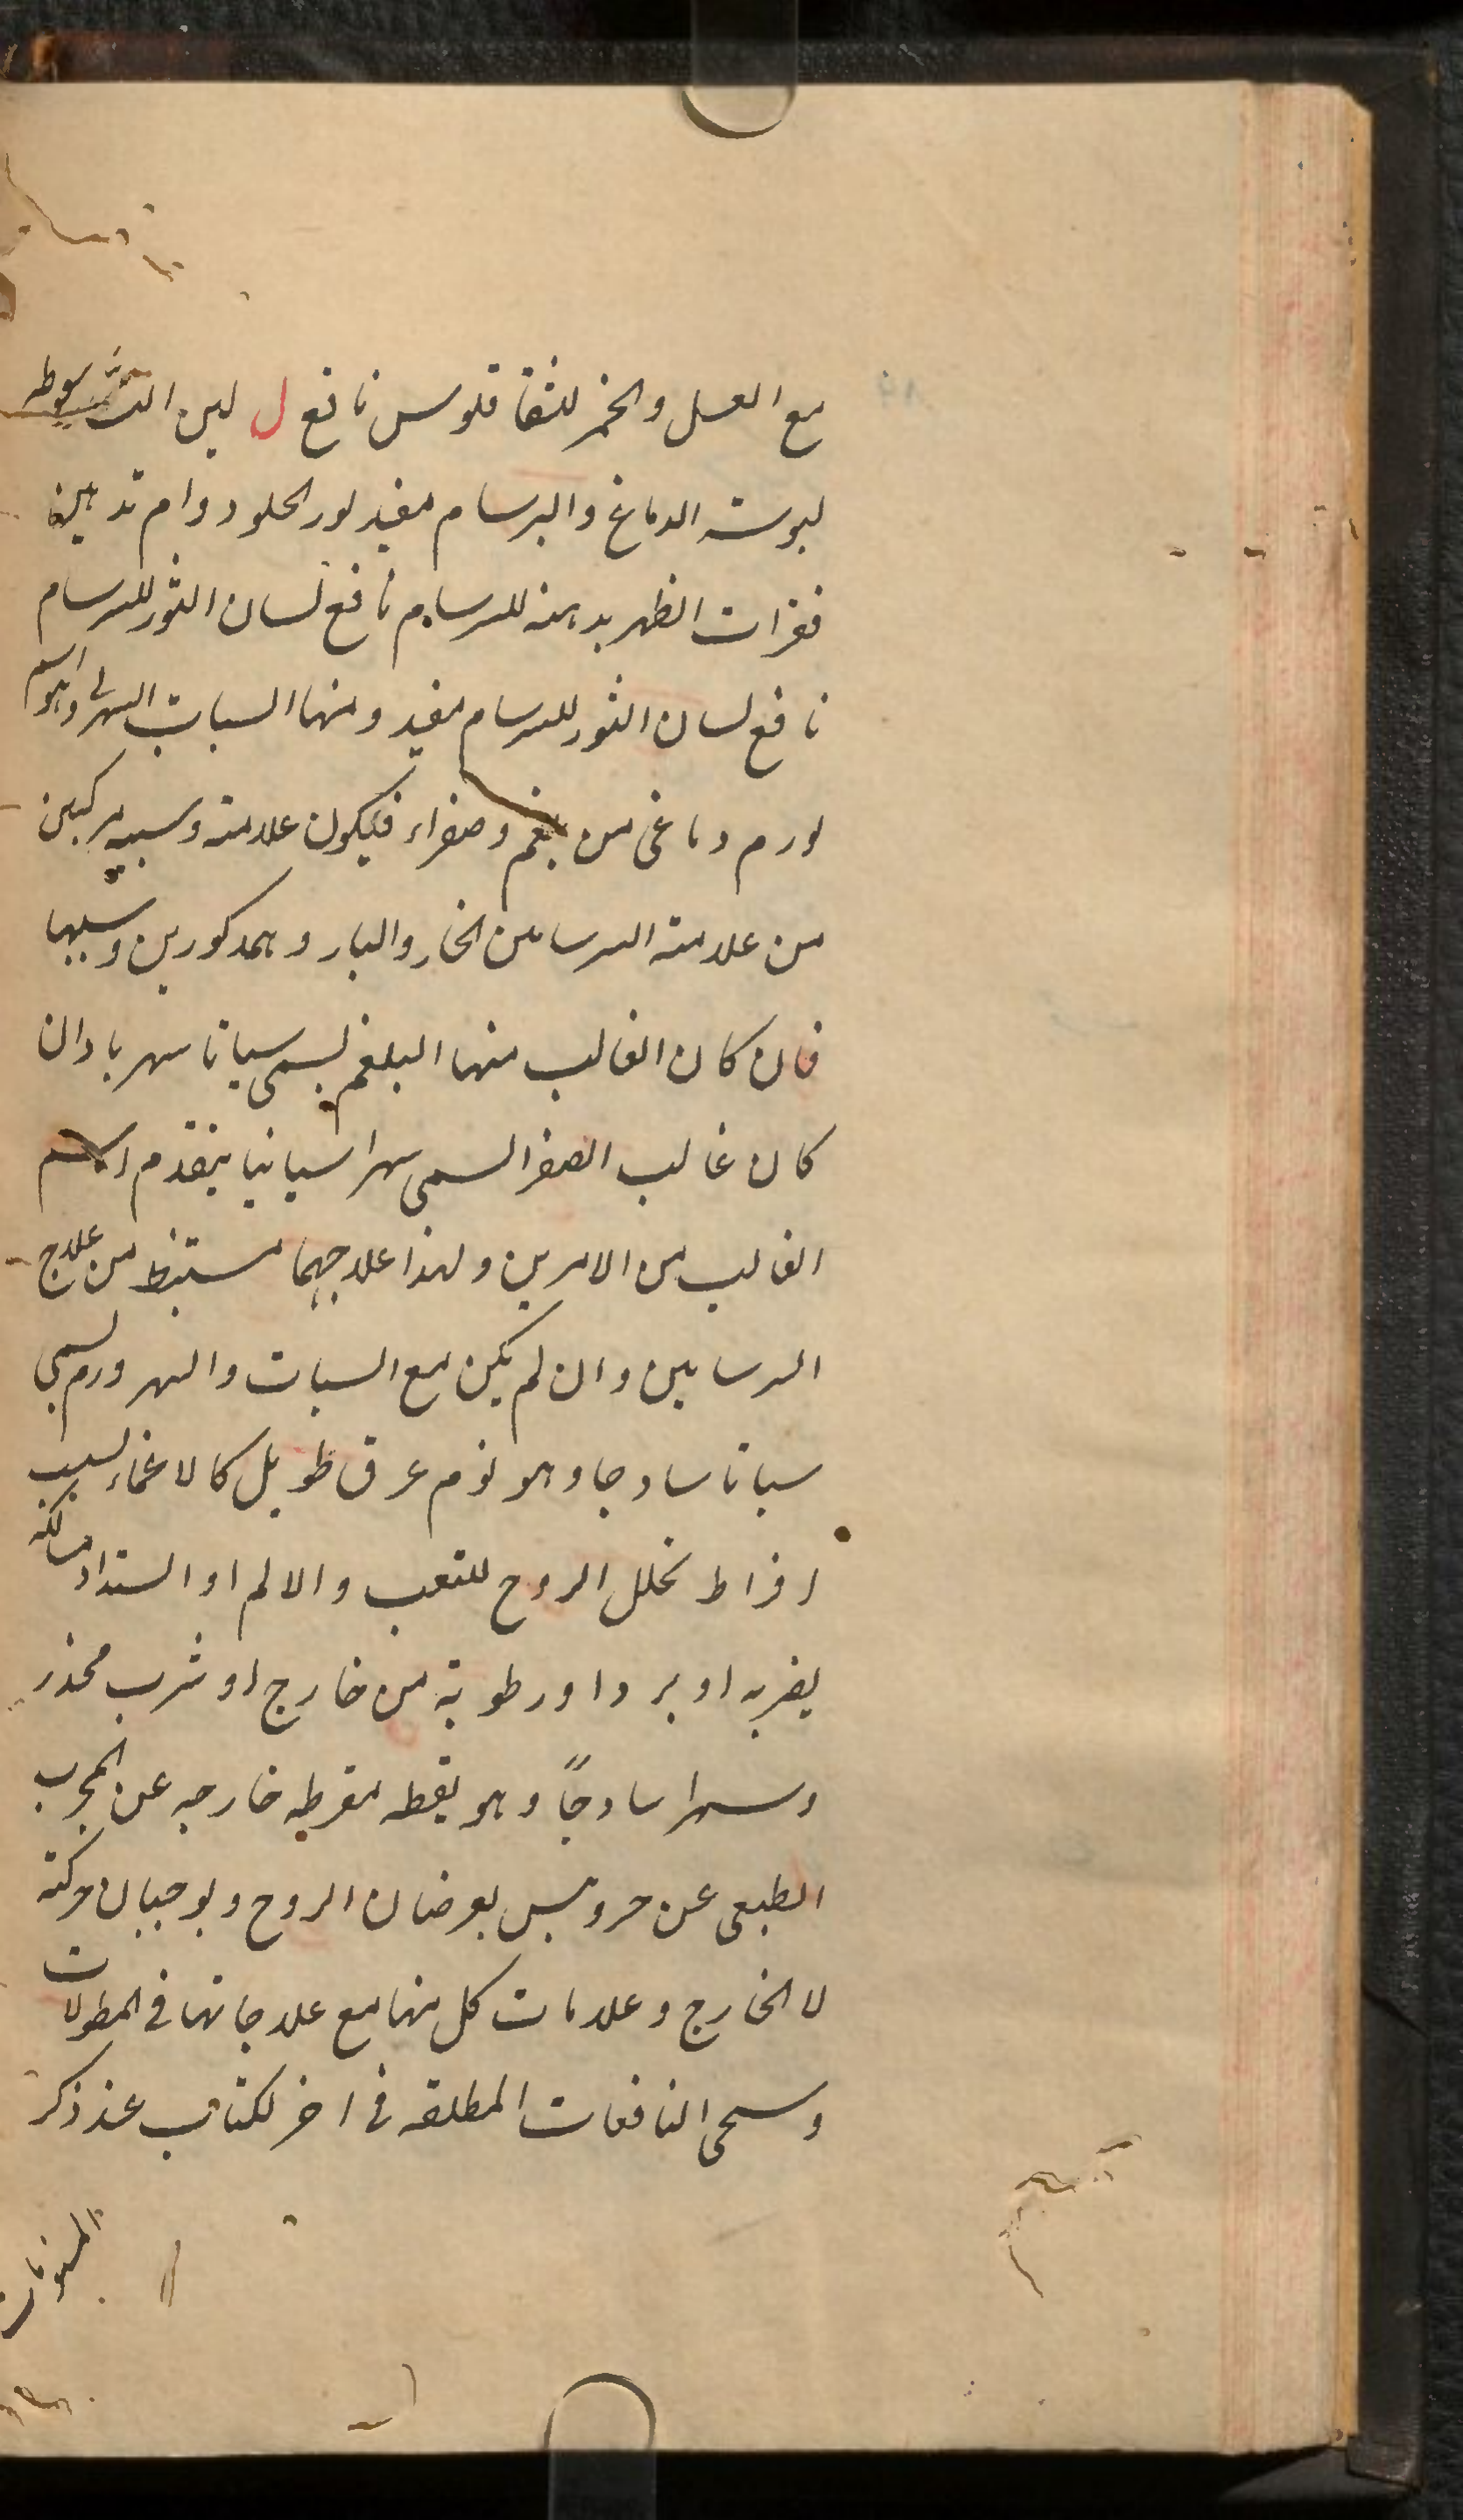 مع العسل والخمر للثقاقلوس نافع ل لبن سعوطه
ليبوسة الدماغ والبرسام مفيد لوز الحلو دوام تدهين
فقرات الظهر بدهنه للسرسام نافع لسان الثور للسرسام
نافع لسان الثور للسرسام مفيد ومنها السبات السهرى وهو اسم
لورم دماغى من بلغم وصفراء فيكون علامته وسببه مركبين
من علامة السرسامين الحار والبارد المذكورين وسببهما
فان كان الغالب منهما البلغم يسمى سباتا سهريا وان
كان غالب الصفرا يسمى سهرا سباتيا بتقدم اسم
الغالب من الامرين ولهذا علاجهما مستنبط من علاج
السرسامين وان لم يكن مع السبات والسهر ورم يسمى
سباتا ساذجا وهو نوم غرق طويل كالاغماء لسبب
افراط تحلل الروح للتعب والالم او انسداد مسالكه
بضربه او برد او رطوبة من خارج او شرب مخدر
وسهرا ساذجاً وهو يقظه مفرطه خارجه عن المجرى
الطبعى عن حر ويبس يعرضان الروح ويوجبان حركته
لا الخارج وعلامات كل منها مع علاجاتها فى المطولات
وسيجى النافعات المطلقه فى اخر الكتاب عند ذكر